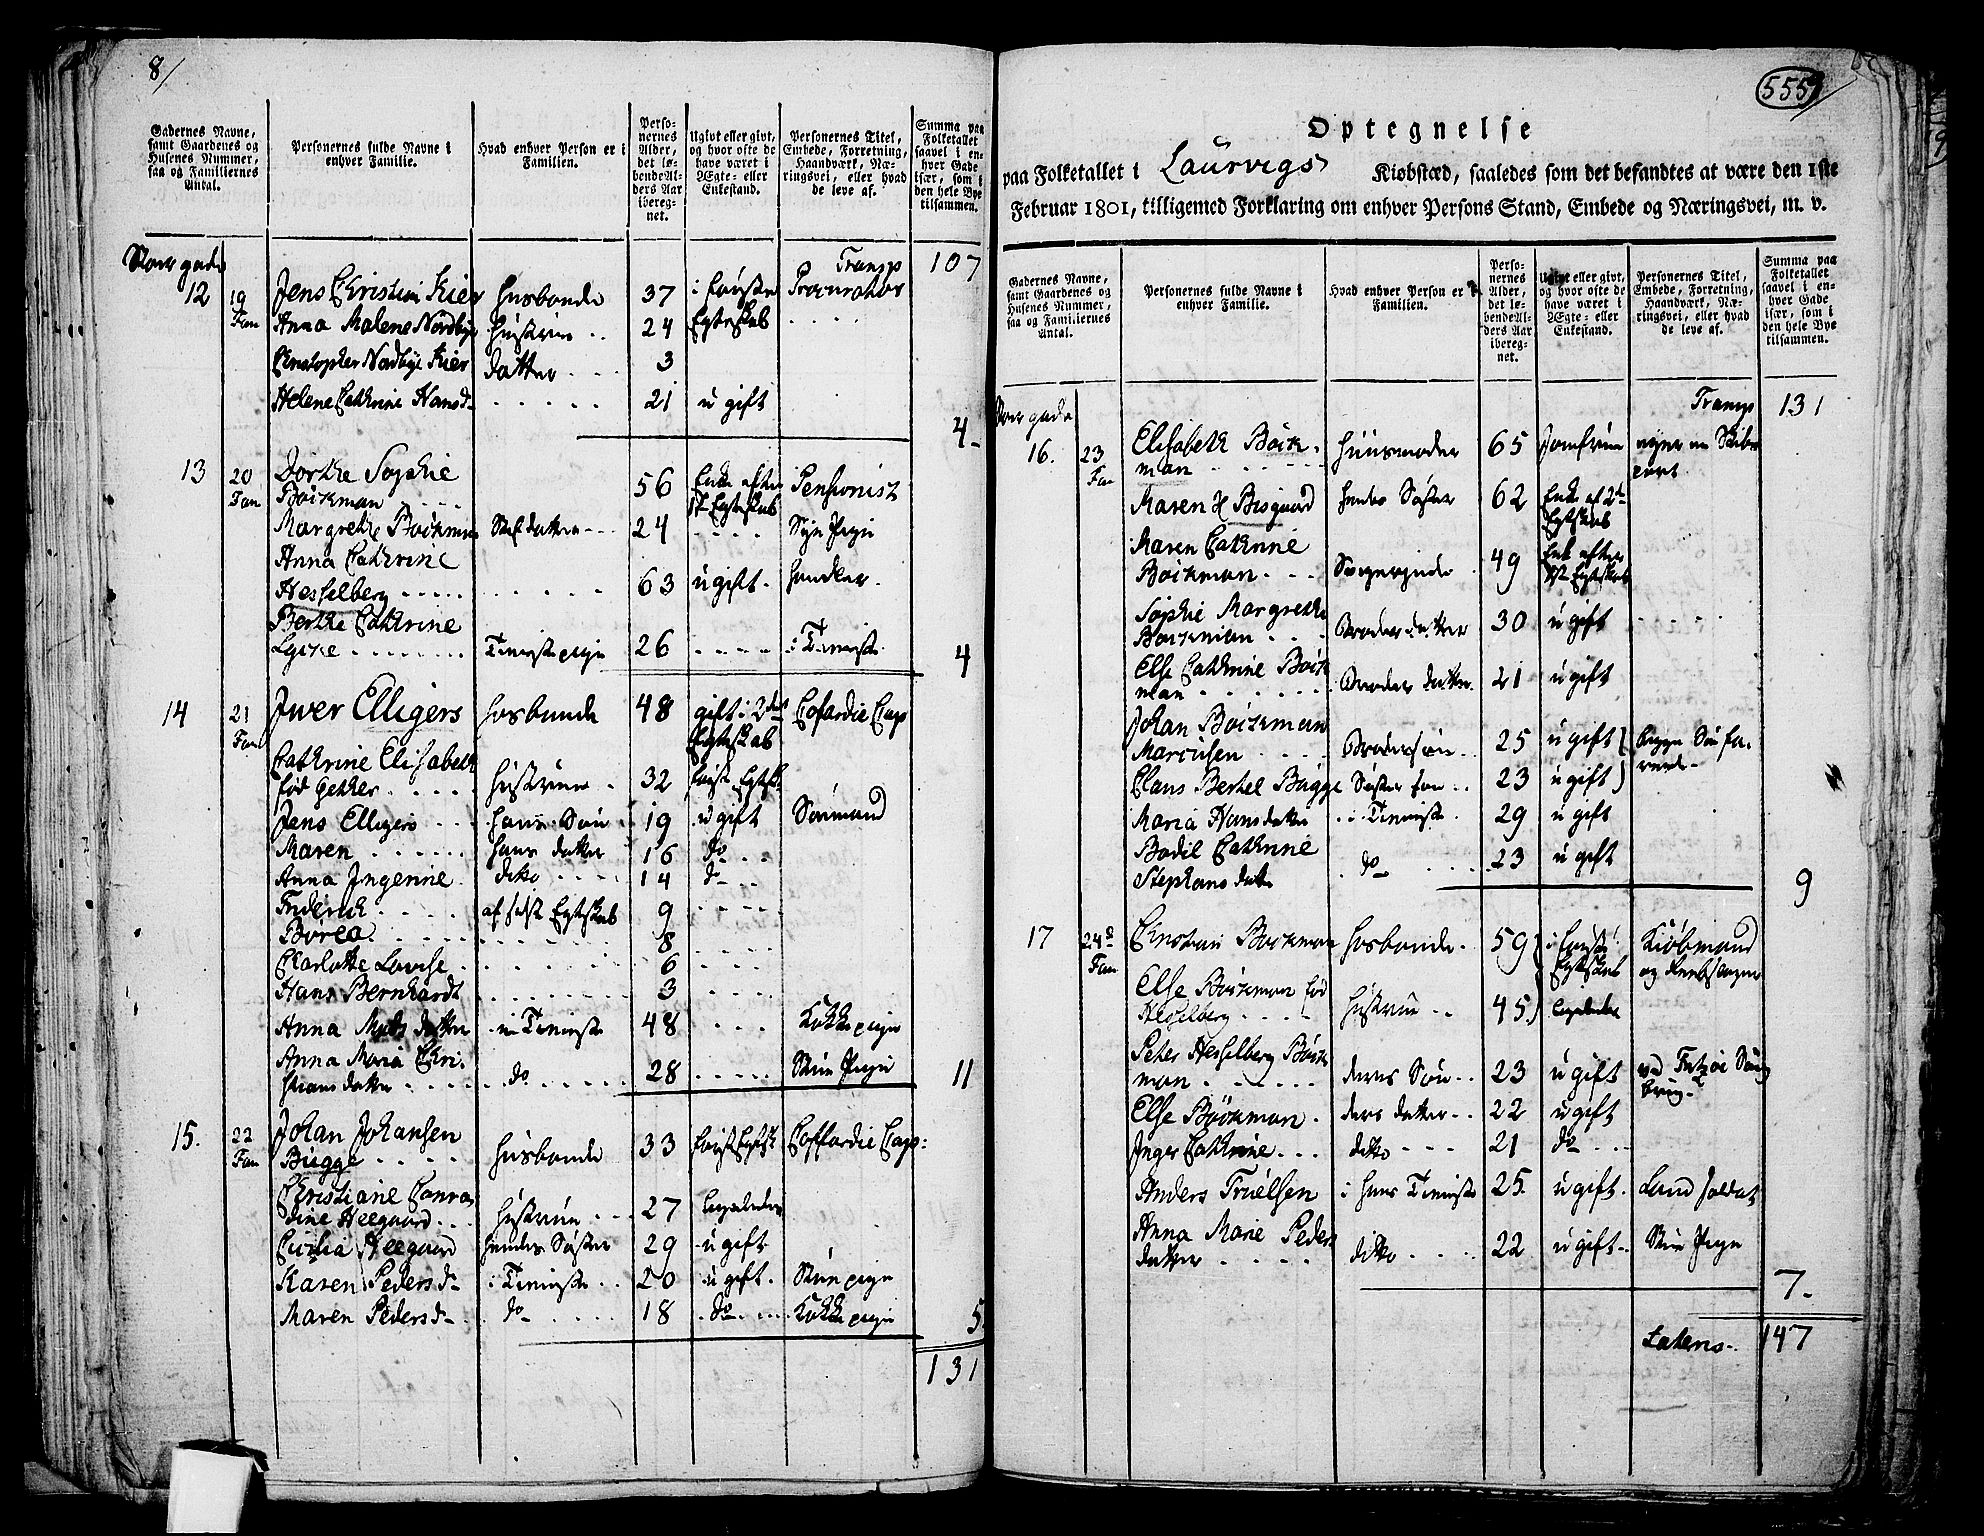 8/
Gadernes Navne, samt Gaardenes og Husenes Nummer, saa og Familiernes Antal.
Personernes fulde Navne i enhver Familie.
Hvad enhver Person er i Familien.
Personernes Alder, det løbende Alders Aar iberegnet.
Ugivt eller givt, og hvor ofte de have været i Ægte- eller Enkestand.
Personernes Titel, Embede, Forretning, Haandværk, Næringsvei, eller hvad de leve af.
Summa paa Folketallet saavel i enhver Gade især, som i den hele Bye tilsammen.
Storgade Transp 107
12 19 Fam Jens Christian Kier Husbonde 37 i første Procurator
Anna Malene Nordbye Hustrue 24 Egteskab
Christopher Nordbye Kier datter 3
Helene Cathrine Hansd 21 ugift
4
13 20 Fam Dorthe Sophie
Böckman 56 Enke efter 1te Egteskab Pensionist
Margrethe Böckman Stifdatter 24 Sye Pige
Anna Cathrine
Hesselberg 63 ugift handler
Berthe Cathrine
Lycke Tienistepige 26 i Tieniste
4
14 21 Fam Iver Elligers Hosbonde 48 gift i 2det Egteskab Cofardie Cap
Cathrine Elisabeth
fød Gether Hustrue 32 første Egtsk
Jens Elligers hans Søn 19 ugift Søemand
Maren hans datter 16 do
Anna Ingerine dito 14 do
Friderich af sidste Egteskab 9
Borea 8
Charlotte Lovise 6
Hans Bernhardt 3
Anna Mads datter i Tieniste 48 Kokkepige
Anna Maria Chri-
stians datter do 28 Stue Pige
11
15. 22 Fam Johan Johansen
Bugge Husbonde 33 første Egtsk Coffardie Cap:
Christiane Conra-
dine Heegaard Hustrue 27 Ligeledes
Cicilia Heegaard hendes Søster 29 ugift
Karen Peders d i Tieniste 20 ugift Stuepige
Maren Peders d do 18 do Kokkepige
5
131
555
Optegnelse
paa Folketallet i Laurvigs Kiøbstæd, saaledes som det befandtes at være den 1ste
Februar 1801, tilligemed Forklaring om enhver Persons Stand, Embede og Næringsvei, m. v.
Gadernes Navne, samt Gaardenes og Husenes Nummer, saa og Familiernes Antal.
Personernes fulde Navne i enhver Familie.
Hvad enhver Person er i Familien.
Personernes Alder, det løbende Alders Aar iberegnet.
Ugivt eller givt, og hvor ofte de have været i Ægte- eller Enkestand.
Personernes Titel, Embede, Forretning, Haandværk, Næringsvei, eller hvad de leve af.
Summa paa Folketallet saavel i enhver Gade især, som i den hele Bye tilsammen.
Storgade Transp 131
16. 23 Fam Elisabeth Böck-
man Huusmoder 65 Jomfrue eyer en Skibs part
Maren H Bisgaard hendes Søster 62 Enke af 2det Egteskab
Maren Cathrine
Böckman 49 Enke efter 1te Egteskab
Sophie Margrethe
Böckman Broder datter 30 ugift
Else Cathrine Böck-
man Broder datter 21 ugift
Johan Böckman
Marcusen Brodersøn 25 ugift begge Søefarende
Claus Bertel Bugge Søster søn 23 ugift
Maria Hansdatter i Tieniste 29 ugift
Bodil Cathrine
Stephans datter do 23 ugift
9
17 24de Fam Christian Böckman Hosbonde 59 i første Egteskab Kiöbmand
Else Böckman fød
Hesselberg Hustrue 45 Ligeledes
Peter Hesselberg Böck-
man deres Søn 23 ugift ved Fritzøe
Else Böckman ders datter 22 ugift
Inger Cathrine ditto 21 do
Anders Truelsen i hans Tieniste 25. ugift Land soldat
Anna Marie Peders
datter ditto 22 ugift Stue Pige
7
Lateris 147